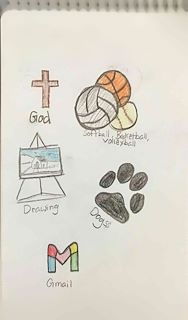 God
Softball, Basketball,
Volleyball
Drawing
Dogs
Gmail